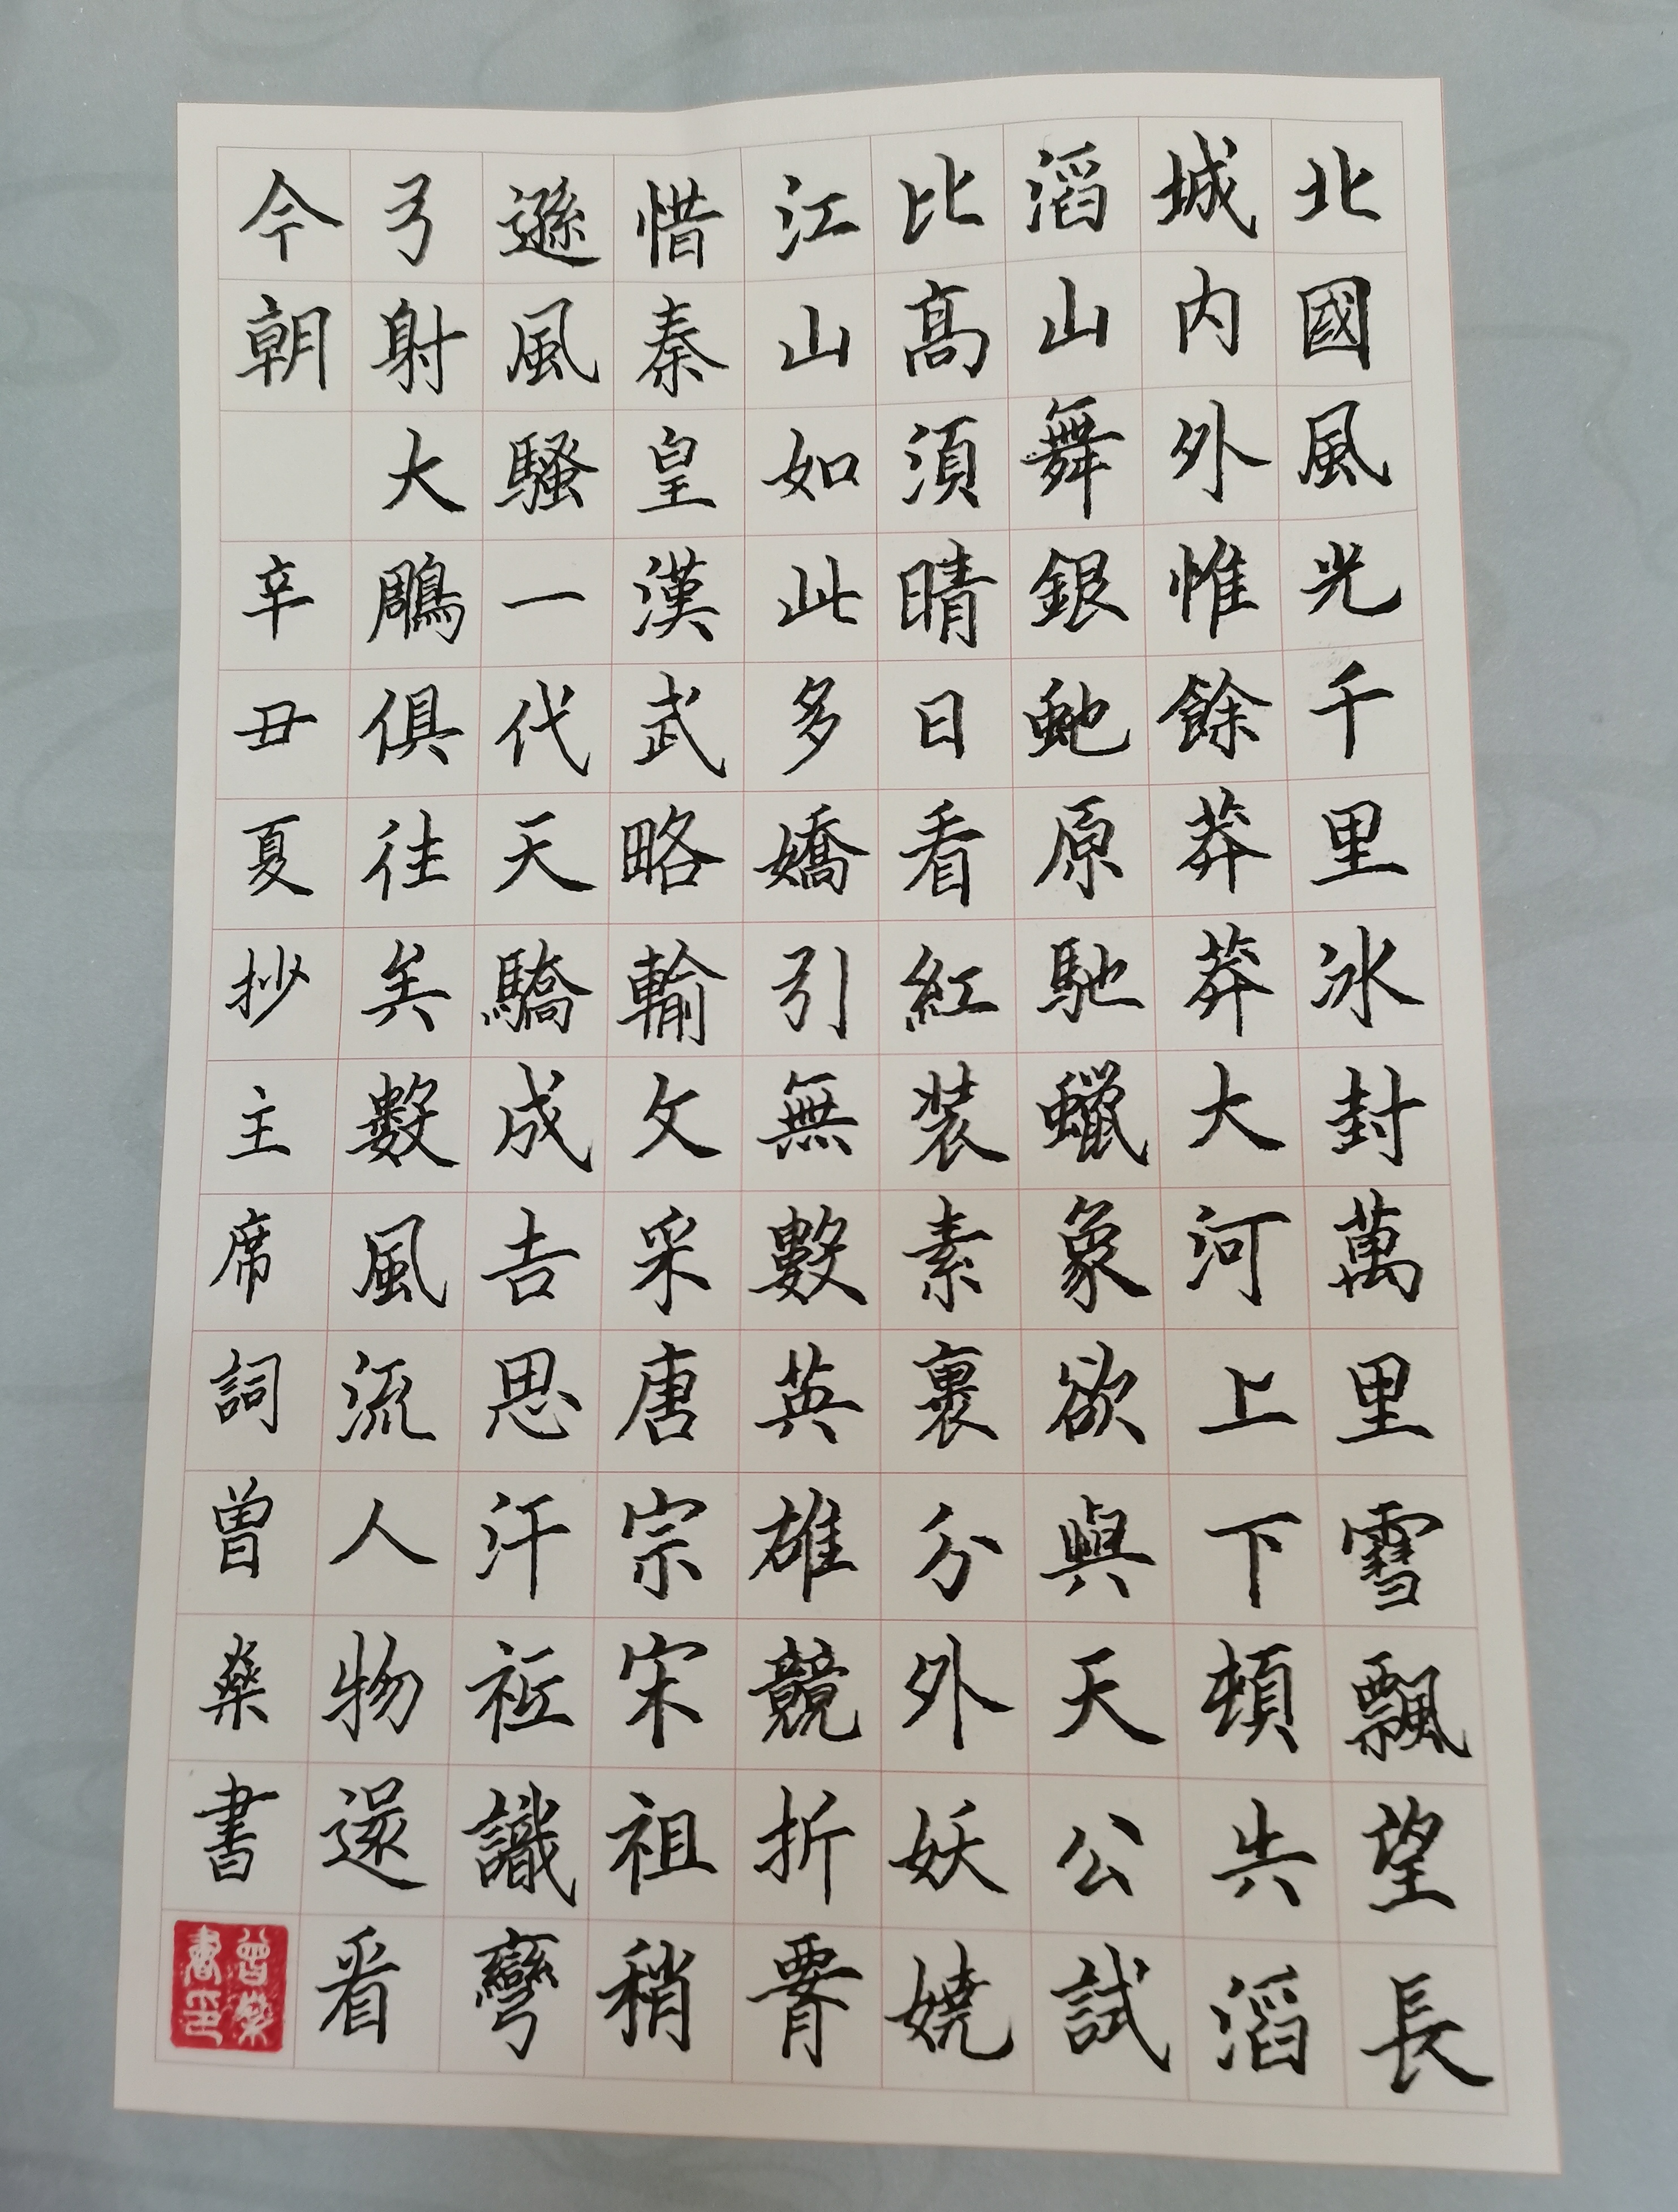 北國風光千里冰封萬里雪飄望長
城内外惟餘莽莽大河上下頓失滔
滔山舞銀虵原馳蠟象欲與天公試
比高須晴日看紅装素裹分外妖嬈
江山如此多嬌引無數英雄競折腰
惜秦皇漢武略輸文采唐宗宋祖稍
遜風騷一代天驕成吉思汗祗識彎
弓射大鵰俱往矣數風流人物還看
今朝 辛丑夏抄主席詞曾燊書
曾燊書印